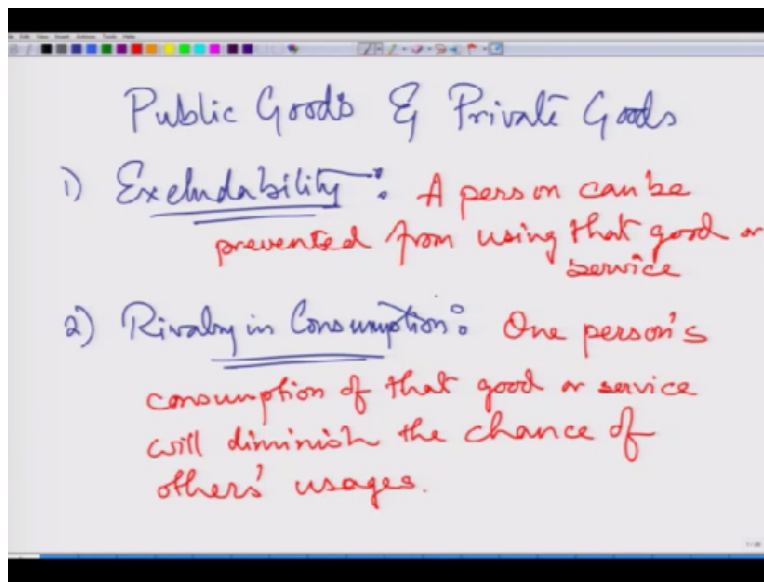 Public Goods & Private Goods
1) Excludability: A person can be
prevented from using that good or
service
2) Rivalry in Consumption: One person's
consumption of that good or service
will diminish the chance of
others' usages.